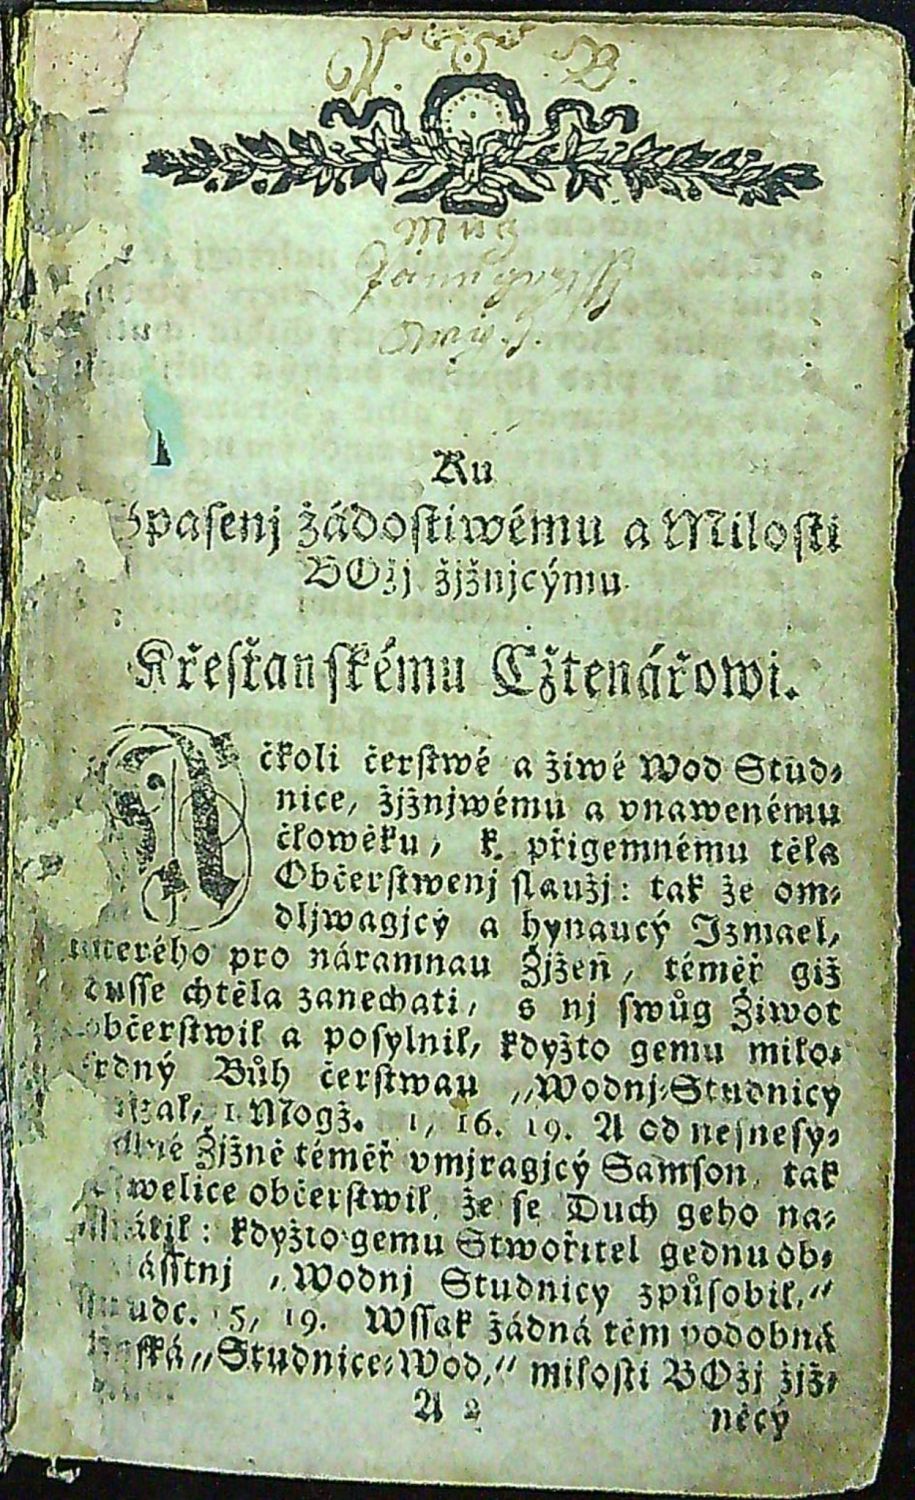 B.
Mug
Ku
Spasenj žádostiwému a Milosti
BOžj žjžnjcýmu
Křesťanskému Cžtenářowi.
Ačkoli čerstwé a žiwé Wod Stud-
nice, žjžnjwému a vnawenému
člowěku, k přigemnému těla
Občerstwenj slaužj: tak že om-
dljwagjcý a hynaucý Izmael,
kterého pro náramnau Žjžeň, téměř giž
dusse chtěla zanechati, s nj swůg Žiwot
občerstwil a posylnil, kdyžto gemu milo-
srdný Bůh čerstwau „Wodnj-Studnicy
1 Mogž. 1, 16. 19. A od nesnesy-
Žjžně téměř vmjragjcý Samson, tak
welice občerstwil, že se Duch geho na-
wrátil: kdyžto gemu Stwořitel gednu ob-
zwlásstnj „Wodnj Studnicy způsobil,“
Saudc. 15, 19. Wssak žádná těm podobná
„Studnice-Wod,“ milosti BOžj žjž-
A 2 něcý